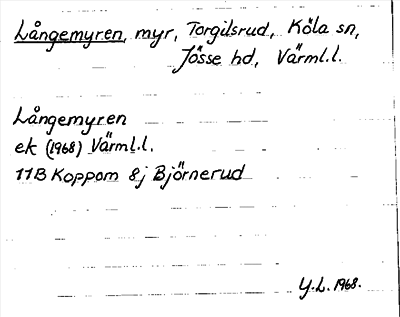 Långemyren, myr, Torgilsrud, Köla sn,
Jösse hd, Värml.l.
Långemyren
ek (1968) Värml.l.
11B Koppom 8j Björnerud
Y.L. 1968.